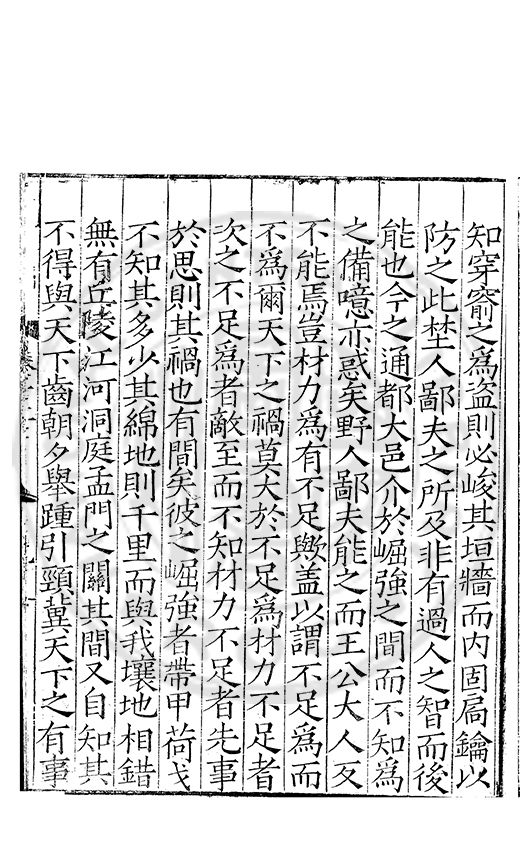 知穿窬之為盜則必峻其垣牆而内固扃鑰以
防之此埜人鄙夫之所及非有過人之智而後
能也今之通都大邑介於崛強之間而不知為
之備噫亦惑矣野人鄙夫能之而王公大人反
不能焉豈材力為有不足歟盖以謂不足為而
不為爾天下之禍莫大於不足為材力不足者
次之不足為者敵至而不知材力不足者先事
於思則其禍也有間矣彼之崛強者帶甲荷戈
不知其多少其綿地則千里而與我壤地相錯
無有丘陵江河洞庭孟門之關其間又自知其
不得與天下齒朝夕舉踵引頸冀天下之有事